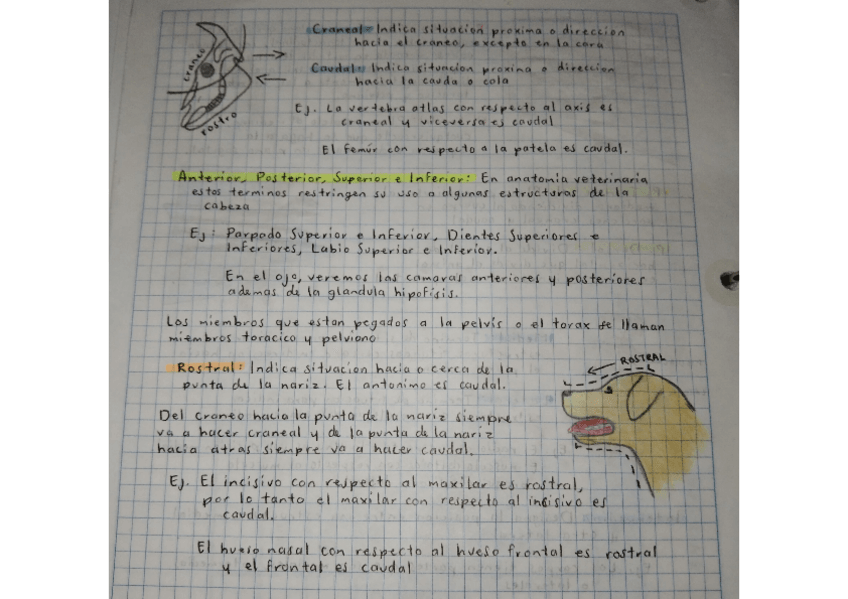 craneo
rostro
Craneal: Indica situacion proxima o direccion
hacia el craneo, excepto en la cara
Caudal: Indica situncion proxima o direccion
hacia la cauda o cola
Ej. La vertebra atlas con respecto al axis es
craneal y viceversa es caudal
El femúr con respecto a la patela es caudal.
Anterior, Posterior, Superior e Inferior: En anatomia veterinaria
estos terminos restringen su uso a algunas estructuras de la
cabeza
Ej: Parpado Superior e Inferior, Dientes Superiores e
Inferiores, Labio Superior e Inferior.
En el ojo, veremos las camaras anteriores y posteriores
ademas de la glandula hipofisis.
Los miembros que estan pegados a la pelvis o el torax se llaman
miembros toracico y pelviano
Rostral: Indica situacion hacia o cerca de la
punta de la nariz. El antonimo es caudal.
ROSTRAL
Del craneo hacia la punta de la nariz siempre
va a hacer craneal y de la punta de la nariz
hacia atras siempre va a hacer caudal.
Ej. El incisivo con respecto al maxilar es rostral,
por lo tanto el maxilar con respecto al incisivo es
caudal.
El hueso nasal con respecto al hueso frontal es rostral
y el frontal es caudal